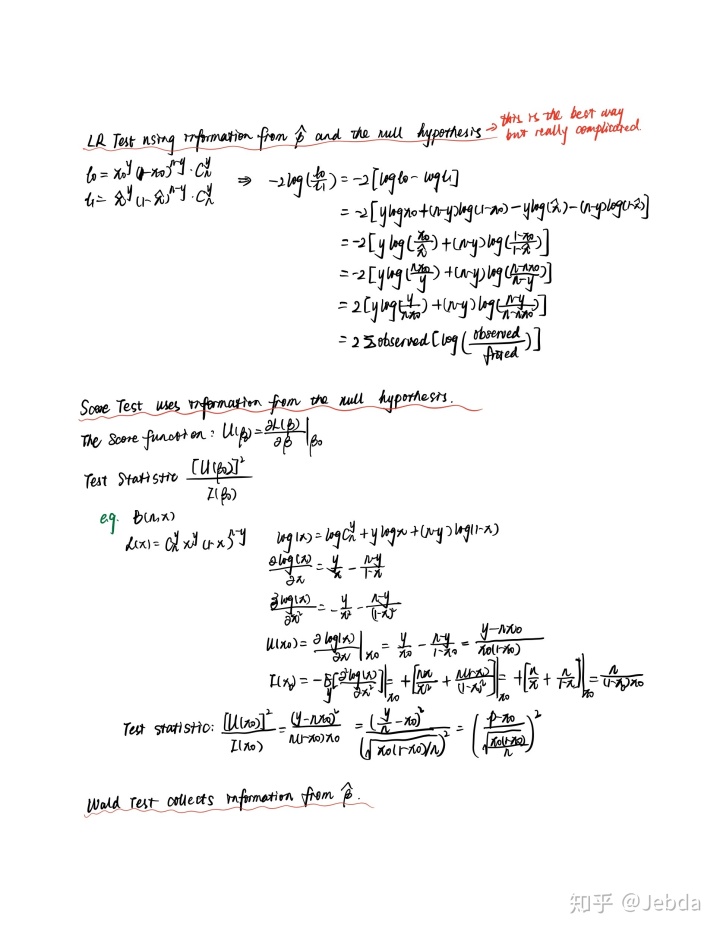 LR Test using information from β̂ and the null hypothesis → this is the best way
but really complicated.
l₀ = π₀^y (1-π₀)^(n-y) · C_n^y
l₁ = π̂^y (1-π̂)^(n-y) · C_n^y
⇒ -2log(l₀/l₁) = -2[logl₀ - logl₁]
= -2[ylogπ₀+(n-y)log(1-π₀) - ylog(π̂) - (n-y)log(1-π̂)]
= -2[ylog(π₀/π̂) + (n-y)log((1-π₀)/(1-π̂))]
= -2[ylog(nπ₀/y) + (n-y)log((n-nπ₀)/(n-y))]
= 2[ylog(y/nπ₀) + (n-y)log((n-y)/(n-nπ₀))]
= 2Σobserved[log(observed/fitted)]
Score Test uses information from the null hypothesis.
The Score function: U(β₀) = ∂L(β)/∂β |β₀
Test Statistic [U(β₀)]²/I(β₀)
e.g. B(n,π)
L(π) = C_n^y π^y (1-π)^(n-y) log(π) = logC_n^y + ylogπ + (n-y)log(1-π)
∂log(π)/∂π = y/π - (n-y)/(1-π)
∂²log(π)/∂π² = -y/π² - (n-y)/(1-π)²
U(π₀) = ∂log(π)/∂π |π₀ = y/π₀ - (n-y)/(1-π₀) = (y-nπ₀)/(π₀(1-π₀))
I(π₀) = -E_y[∂²log(π)/∂π²]|π₀ = +[nπ/π² + n(1-π)/(1-π)²]|π₀ = +[n/π + n/(1-π)]|π₀ = n/((1-π₀)π₀)
Test statistic: [U(π₀)]²/I(π₀) = (y-nπ₀)²/(n(1-π₀)π₀) = (y/n - π₀)²/(√(π₀(1-π₀)/n))² = ((p-π₀)/√(π₀(1-π₀)/n))²
Wald Test collects information from β̂.
知乎 @Jebda